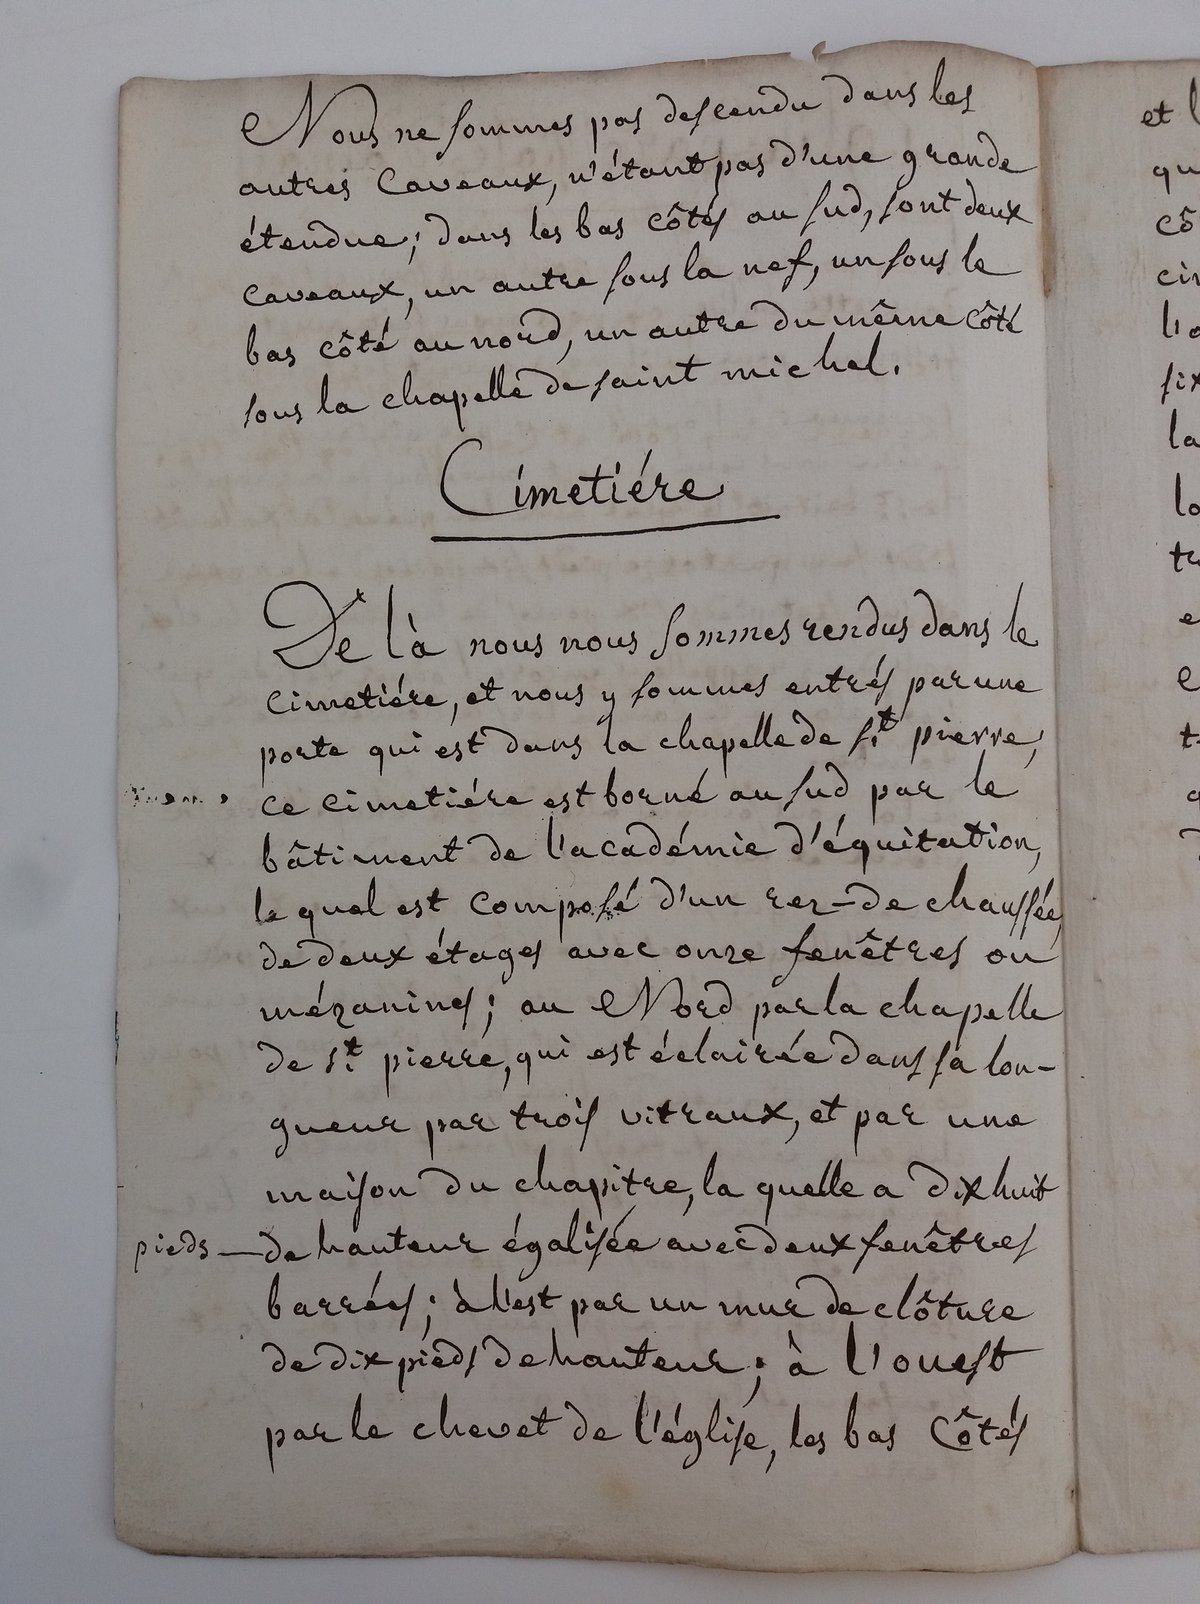 Nous ne sommes pas descendu dans les
autres Caveaux, n'étant pas d'une grande
étendue; dans les bas côtés au sud, sont deux
Caveaux, un autre sous la nef, un sous le
bas côté au nord, un autre du même côté
sous la chapelle de saint michel.
Cimetiére
De là nous nous sommes rendus dans le
cimetiére, et nous y sommes entrés par une
porte qui est dans la chapelle de st pierre,
ce cimetiére est borné au sud par le
bâtiment de l'académie d'équitation,
le quel est composé d'un rez-de chaussée,
de deux étages avec onze fenêtres ou
mézanines; au Nord par la chapelle
de st pierre, qui est éclairée dans sa lon-
gueur par trois vitraux, et par une
maison du chapitre, la quelle a dix huit
pieds — de hauteur égalisée avec deux fenêtres
barrées; à l'est par un mur de clôture
de dix pieds de hauteur; à l'ouest
par le chevet de l'église, les bas Côtés
et
qu
cô
cin
l'o
six
la
lo
tr
e